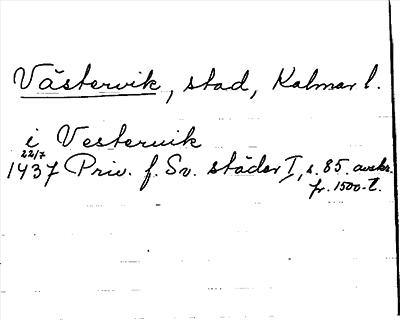 Västervik, stad, Kalmar l.
i Vestervik
22/7
1437 Priv. f. Sv. städer I, s. 85. avskr.
fr. 1500-t.